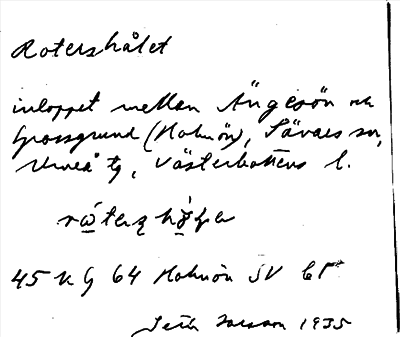 Rotershålet
inloppet mellan Ängesön och
Grossgrund (Holmön), Sävars sn,
Umeå tg, Västerbottens l.
45 K G 64 Holmön SV
Seth 1935